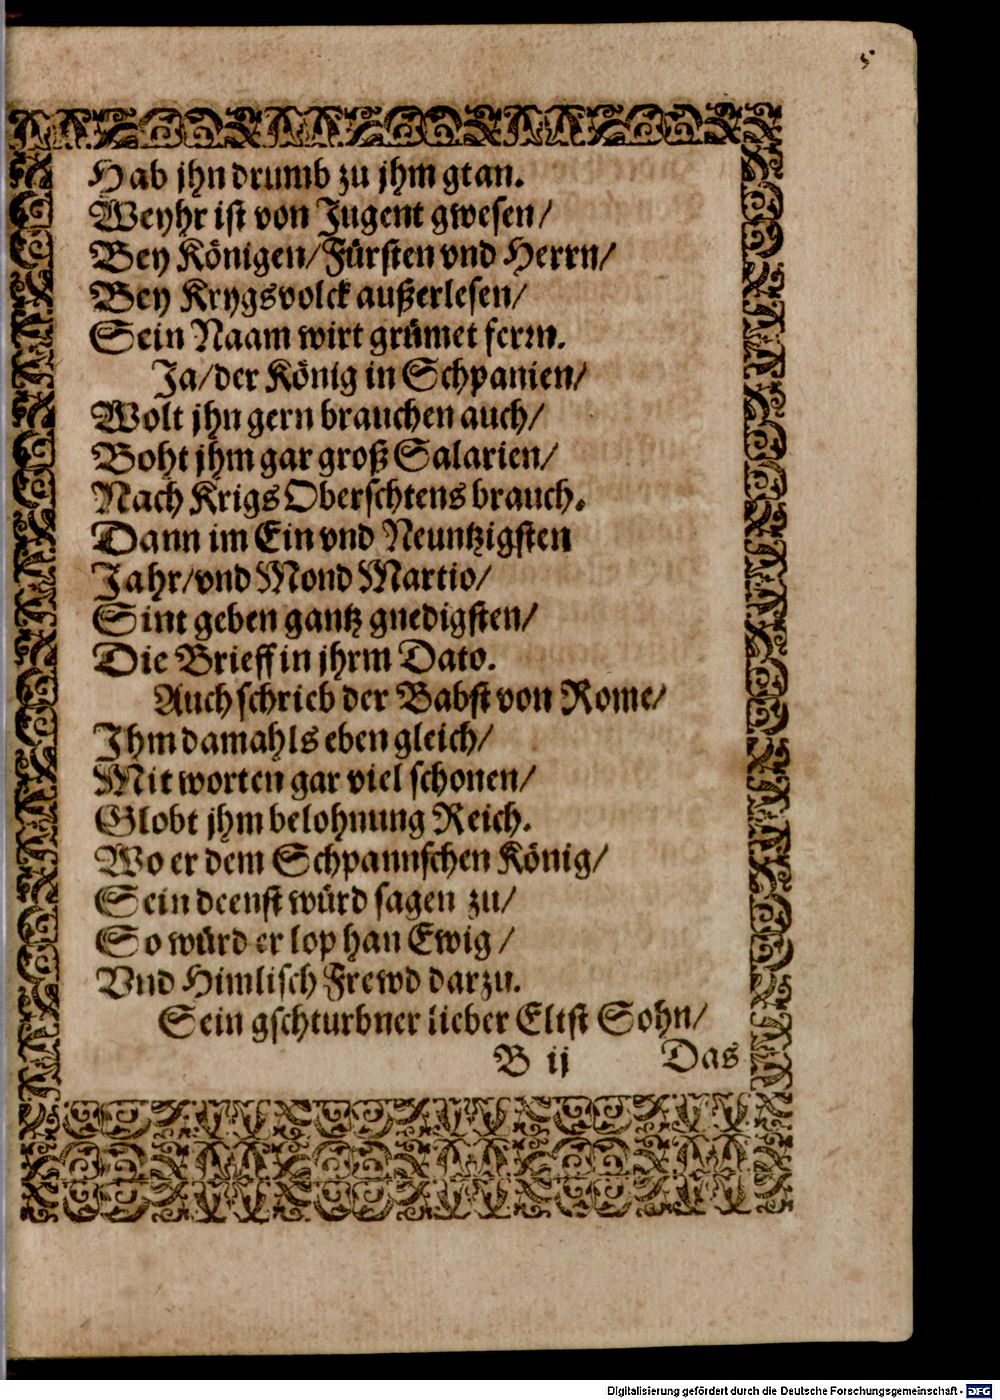 5
Hab jhn drumb zu jhm gtan.
Weyhr ist von Jugent gwesen/
Bey Königen/Fürsten vnd Herrn/
Bey Krygsvolck außerlesen/
Sein Naam wirt grümet ferrn.
Ja/der König in Schpanien/
Wolt jhn gern brauchen auch/
Boht jhm gar groß Salarien/
Nach Krigs Oberschtens brauch.
Dann im Ein vnd Neuntzigsten
Jahr/vnd Mond Martio/
Sint geben gantz gnedigsten/
Die Brieff in jhrm Dato.
Auch schrieb der Babst von Rome/
Jhm damahls eben gleich/
Mit worten gar viel schonen/
Globt jhm belohnung Reich.
Wo er dem Schpannschen König/
Sein deenst würd sagen zu/
So würd er lop han Ewig/
Vnd Himlisch Frewd darzu.
Sein gschturbner lieber Eltst Sohn/
B ij Das
Digitalisierung gefördert durch die Deutsche Forschungsgemeinschaft - DFG